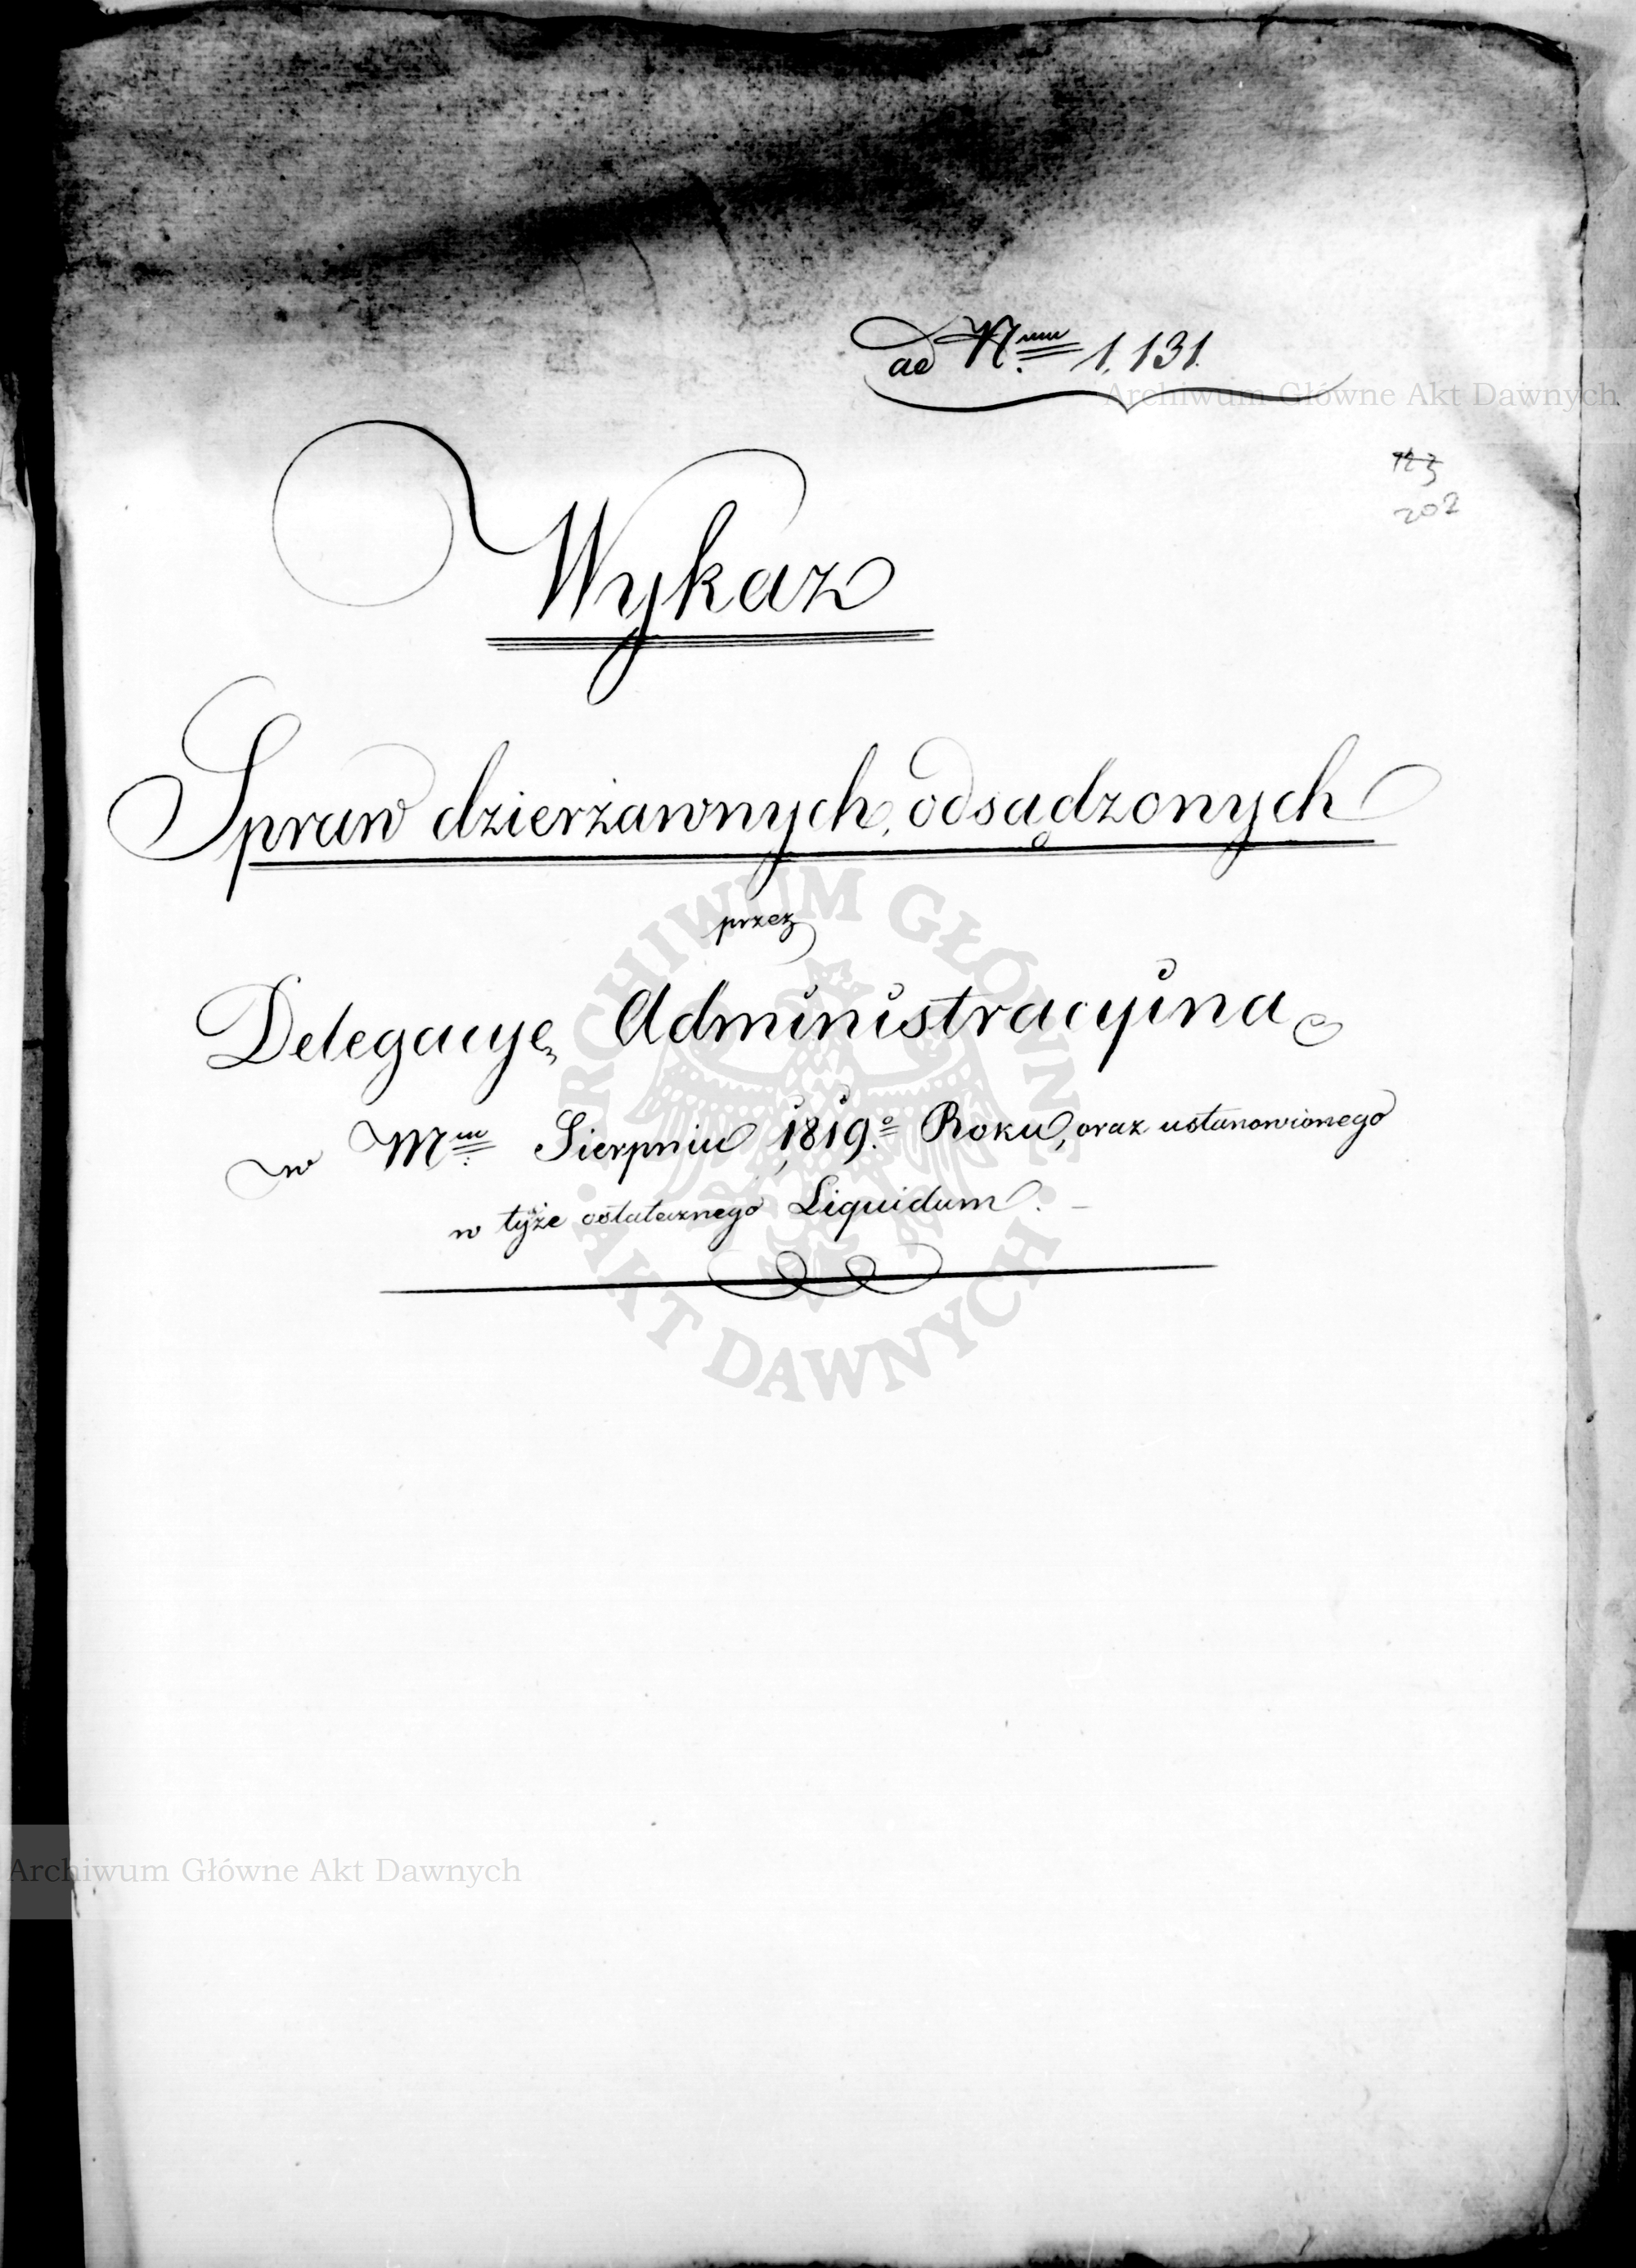 ad N<sup>um</sup> 1,131.
Archiwum Główne Akt Dawnych
202
Wykaz
Spraw dzierżawnych, odsądzonych
przez
Delegacyę Administracyina
w M<sup>cu</sup> Sierpniu 1819<sup>o</sup> Roku, oraz ustanowionego
w tyże ostatecznego Liquidum. –
ARCHIWUM GŁÓWNE
AKT DAWNYCH
Archiwum Główne Akt Dawnych